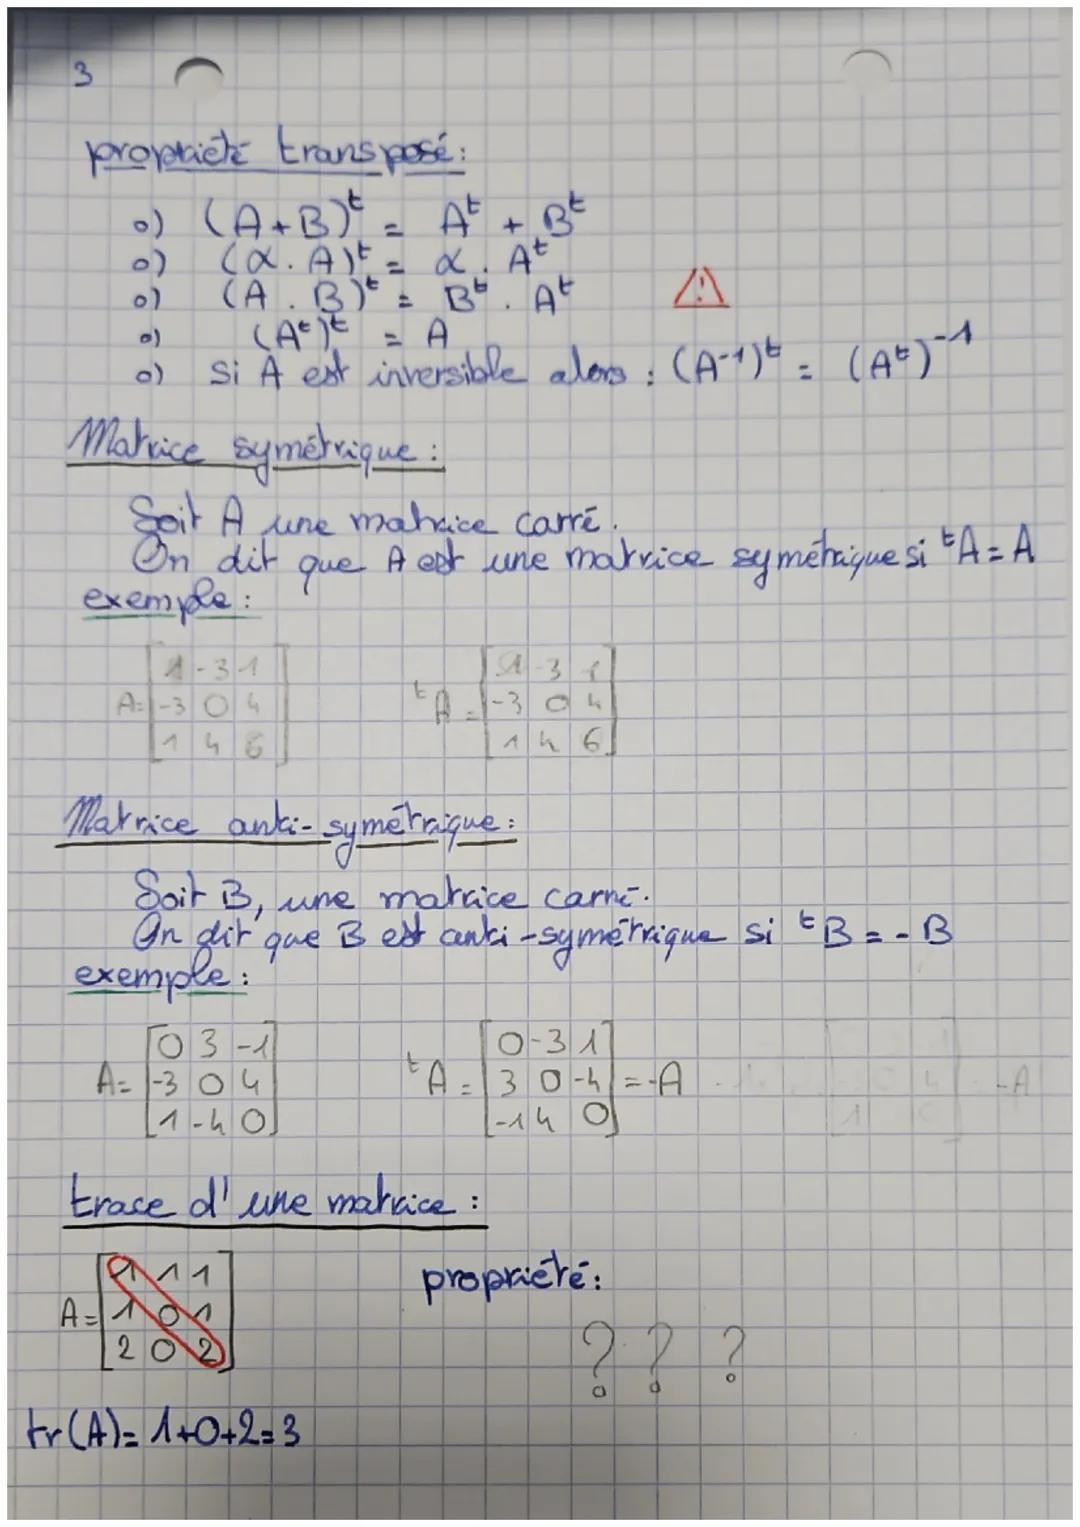 3
propriété transposé :
o) (A+B)ᵗ = Aᵗ + Bᵗ
o) (α . A)ᵗ = α . Aᵗ
o) (A . B)ᵗ = Bᵗ . Aᵗ ⚠
o) (Aᵗ)ᵗ = A
o) Si A est inversible alors : (A⁻¹)ᵗ = (Aᵗ)⁻¹
Matrice symétrique :
Soit A une matrice carré.
On dit que A est une matrice symétrique si ᵗA = A
exemple :
A= [1 -3 1
-3 0 4
1 4 6]
ᵗA = [1 -3 1
-3 0 4
1 4 6]
Matrice anti-symétrique :
Soit B, une matrice carré.
On dit que B est anti-symétrique si ᵗB = - B
exemple :
A= [0 3 -1
-3 0 4
1 -4 0]
ᵗA = [0 -3 1
3 0 -4
-1 4 0] = -A
trace d'une matrice :
A= [1 1 1
1 0 1
2 0 2]
propriété :
? ? ?
tr(A)= 1+0+2=3